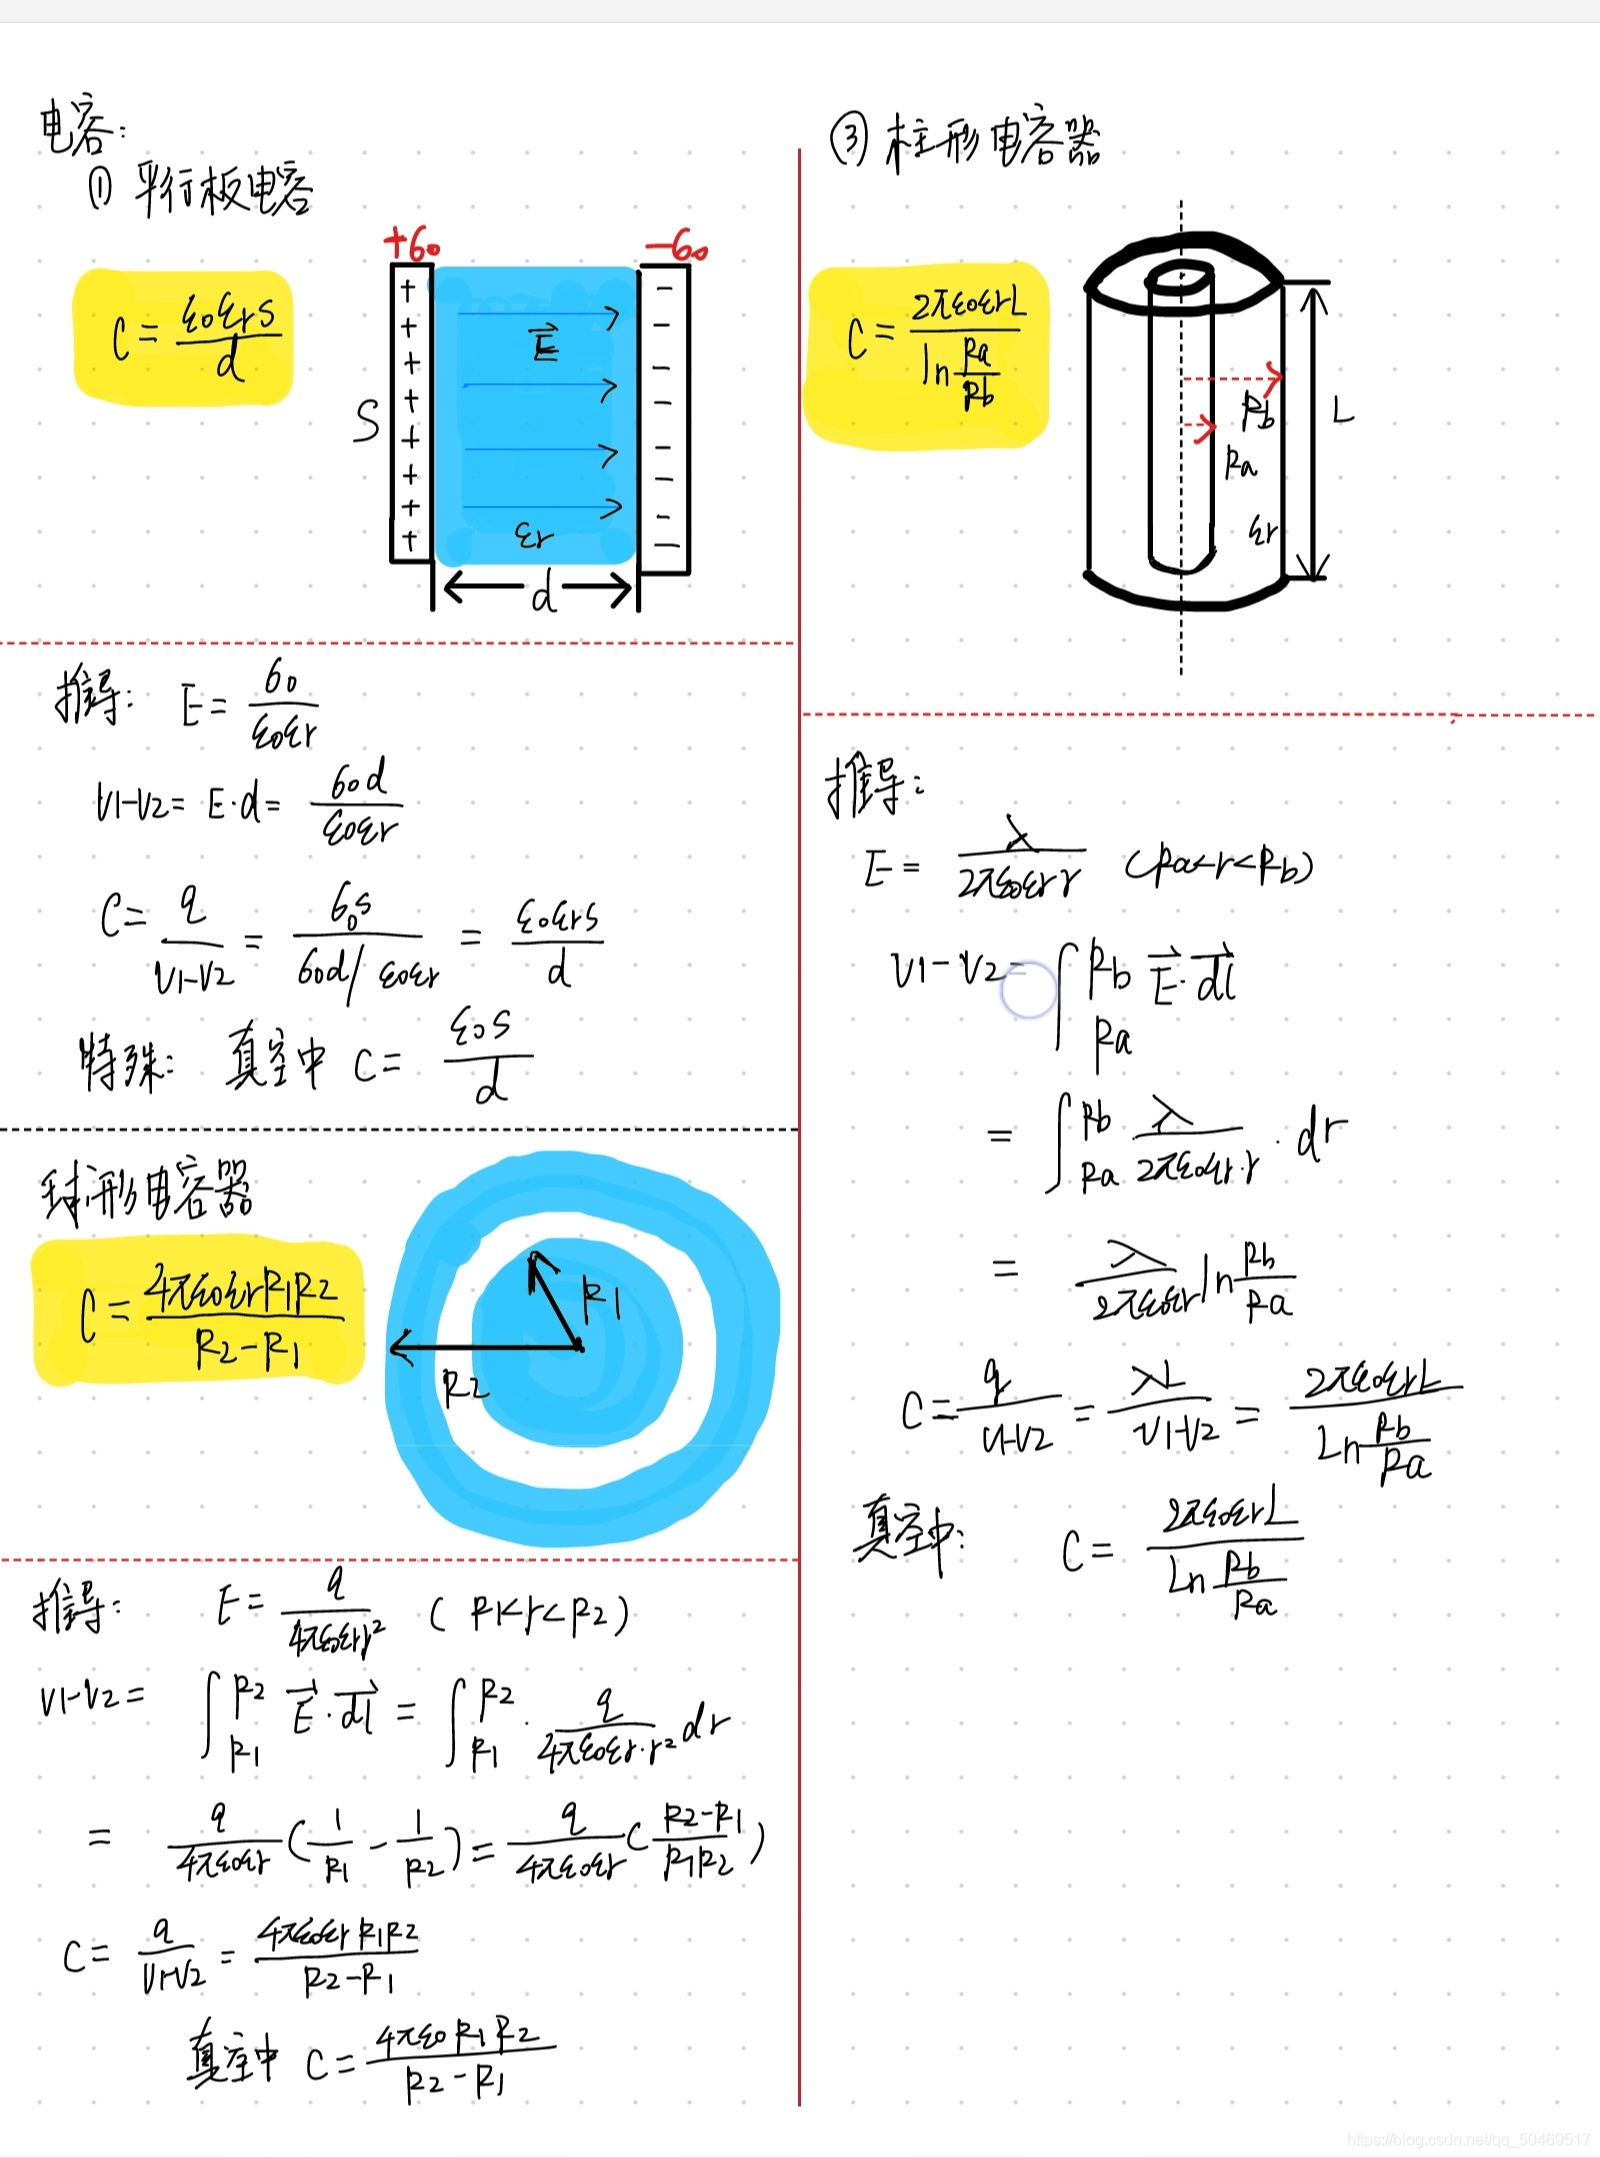 电容：
① 平行板电容
C = ε0εrS / d
+σ0 −σ0
+ + + + + + + +
− − − − − − − −
S
E⃗
εr
d
推导： E = σ0 / ε0εr
V1−V2 = E·d = σ0d / ε0εr
C = q / V1−V2 = σ0S / (σ0d / ε0εr) = ε0εrS / d
特殊： 真空中 C = ε0S / d
球形电容器
C = 4πε0εrR1R2 / R2−R1
R1
R2
推导： E = q / 4πε0εrr² (R1<r<R2)
V1−V2 = ∫R1R2 E⃗·dl⃗ = ∫R1R2 · q / 4πε0εr·r² dr
= q / 4πε0εr (1/R1 − 1/R2) = q / 4πε0εr (R2−R1 / R1R2)
C = q / V1−V2 = 4πε0εrR1R2 / R2−R1
真空中 C = 4πε0R1R2 / R2−R1
③ 柱形电容器
C = 2πε0εrL / ln Ra/Rb
Rb
Ra
L
εr
推导：
E = λ / 2πε0εrr (Ra<r<Rb)
V1−V2 = ∫RaRb E⃗·dl⃗
= ∫RaRb λ / 2πε0εr·r · dr
= λ / 2πε0εr ln Rb/Ra
C = q / V1−V2 = λL / V1−V2 = 2πε0εrL / Ln Rb/Ra
真空中： C = 2πε0εrL / Ln Rb/Ra
https://blog.csdn.net/qq_50469517